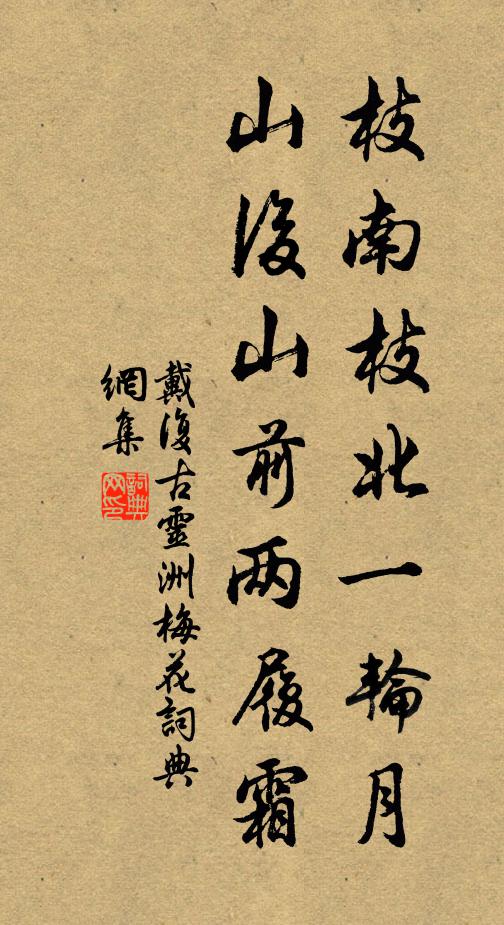 枝南枝北一輪月
山後山前两履霜
戴復古靈洲梅花詞典
網集
詞典
网印